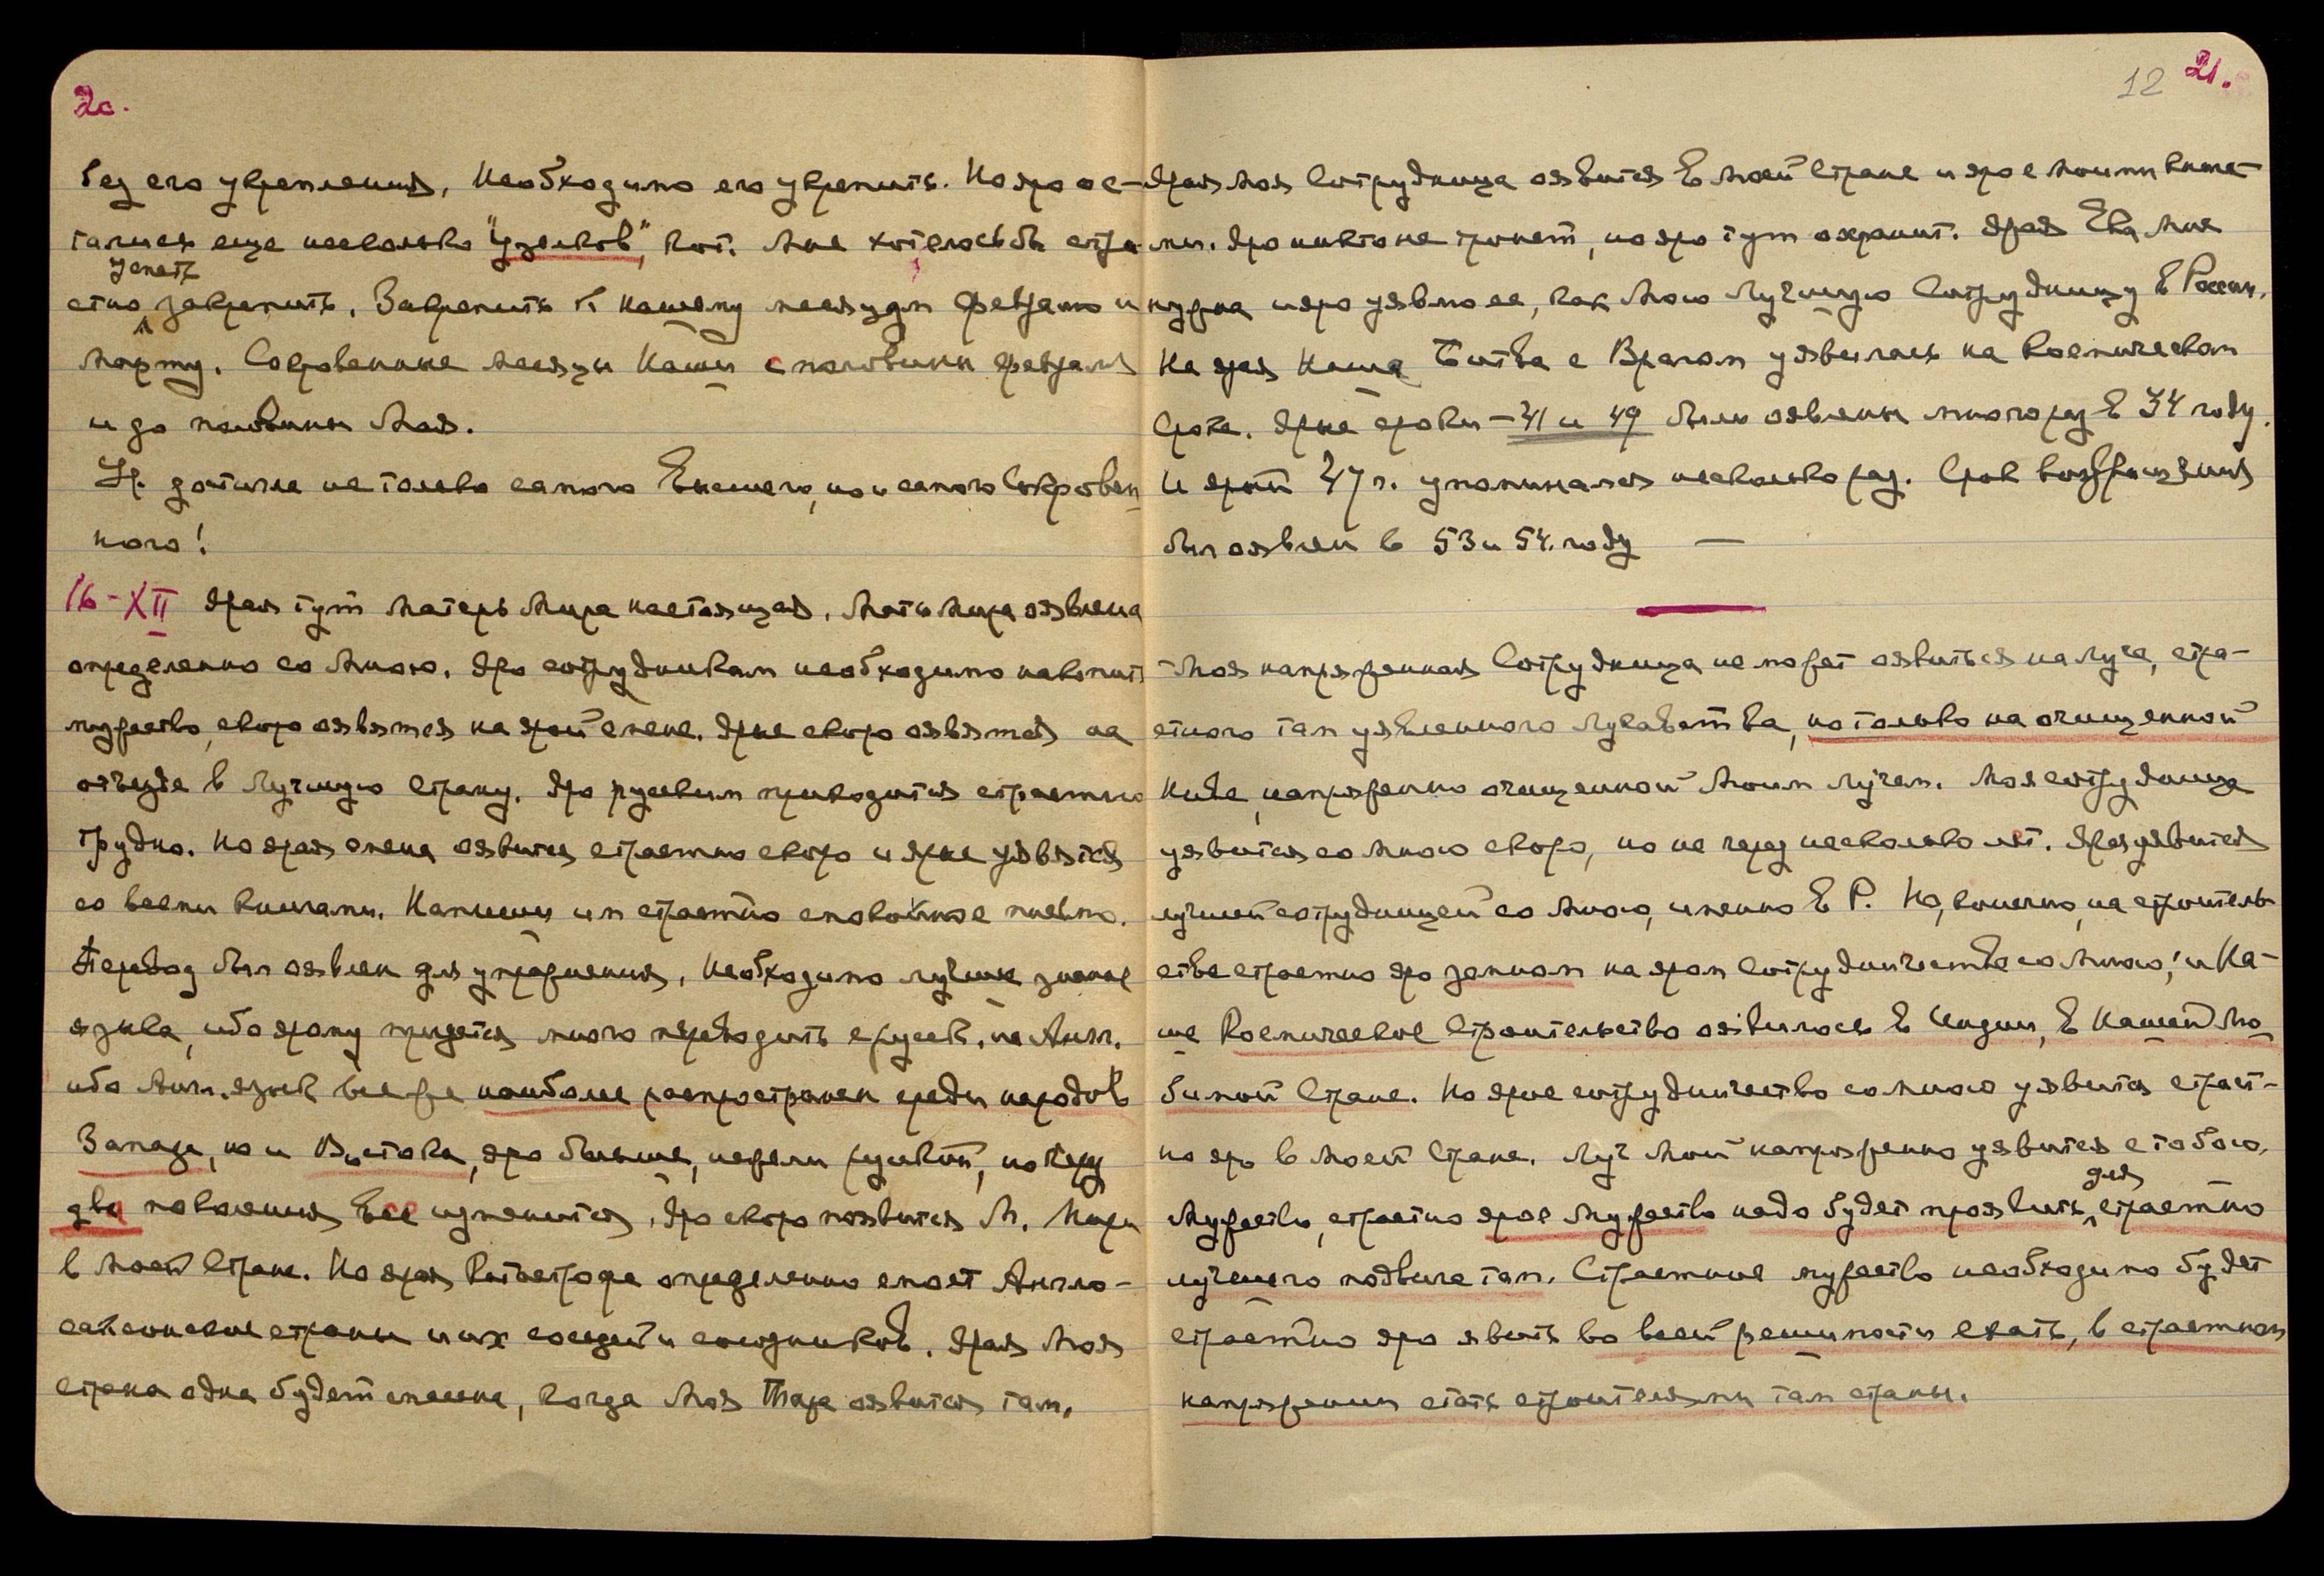 20.
без его укрепления. Необходимо его укрепить. Но яро ос-
тались еще несколько "узелков", кот. Мне хотелось бы стра
успеть
стно закрепить. Закрепить к Нашему месяцу февралю и
марту. Сокровенные месяцы Наши с половины февраля
и до половины Мая.
Ур. достигла не только самого Высшего, но и самого Сокровен
ного!
16-XII Ярая тут Матерь Мира настоящая. Мать Мира оявлена
определенно со Мною. Яро сотрудникам необходимо накопить
мужество, скоро оявятся на ярой смене. Ярые скоро оявятся на
отъезде в Лучшую Страну. Яро русским приходится страстно
трудно. Но ярая смена оявится страстно скоро и ярые уявятся
со всеми книгами. Напишем им страстно спокойное письмо.
Перевод был оявлен для упражнения. Необходимо лучшее знание
языка, ибо ярому придется много переводить с русск. на Англ.
ибо Англ. язык все же наиболее распространен среди народов
Запада, но и Востока, яро больше, нежели русский, но через
два поколения все изменится. Яро скоро появится М. Мира
в Моей Стране. Но ярая Катастрофа определенно смоет Англо-
саксонские страны и их соседей и союзников. Ярая Моя
страна одна будет спасена, когда Моя Тара оявится там.
12 21.
Ярая Моя Сотрудница оявится в Моей Стране и яро с Моими книга-
ми. Яро никто не тронет, но яро тут охранит. Ярая Ева Мне
нужна и яро уявлю ее, как Мою Лучшую Сотрудницу в России.
Но ярая Наша Битва с Врагом уявилась на Космическом
Сроке. Ярые сроки - 41 и 49 были оявлены много раз в 34 году.
И ярый 47 г. упоминался несколько раз. Срок возвращения
был оявлен в 53 и 54. году —
- Моя напряженная Сотрудница не может оявиться на Луче, стра-
стного там уявленного Лукавства, но только на очищенной
Ниве, напряженно очищенной Моим Лучем. Моя сотрудница
уявится со Мною скоро, но не через несколько лет. Ярая уявится
лучшей сотрудницей со Мною, именно в Р. Но, конечно, на строитель-
стве страстно яро земном на яром Сотрудничестве со Мною; и На-
ше Космическое Строительство оявилось в Индии, в Нашей Лю
бимой Стране. Но ярое сотрудничество со мною уявится страст-
но яро в Моей Стране. Луч Мой напряженно уявится с тобою.
для
Мужество, страстно ярое Мужество надо будет проявить страстно
лучшего подвига там. Страстное мужество необходимо будет
страстно яро явить во всей решимости ехать, в страстном
напряжении стать строителями там страны.